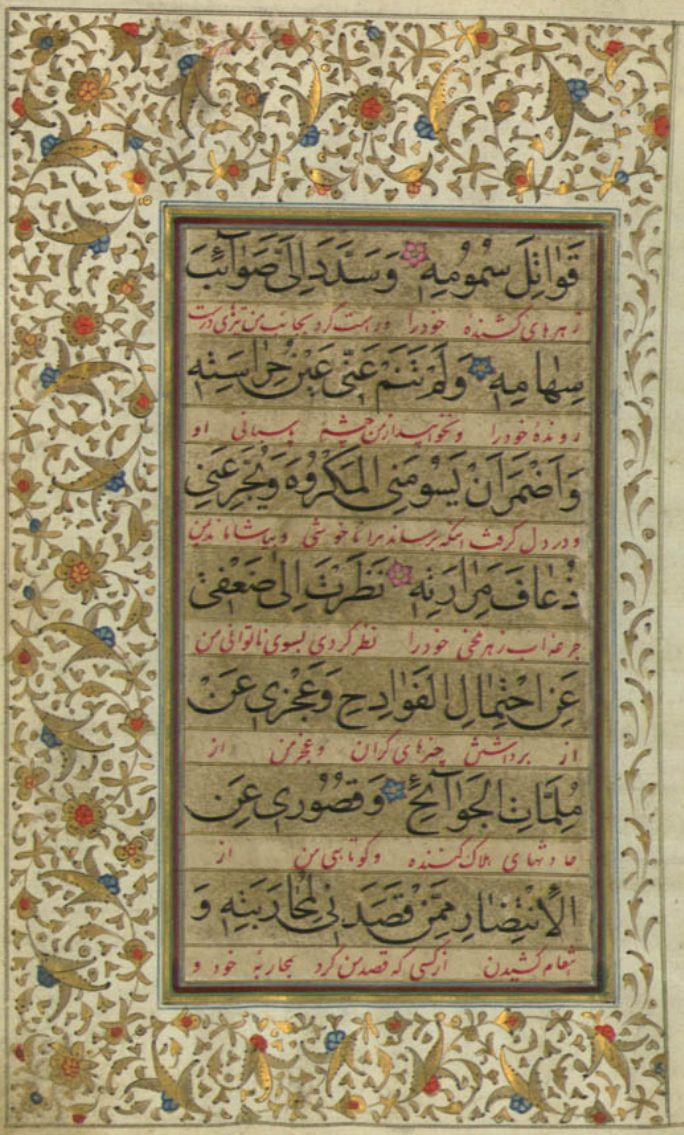 قَوَاتِلَ سُمُومِهِ وَسَدَّدَ إِلَىَّ صَوَآئِبَ
زهرهای کشنده خودرا و راست کرد بجانب من تیرهای درست
سِهَامِهِ وَلَمْ تَنَمْ عَنّى عَيْنُ حِرَاسَتِهِ
رونده خودرا و نخوابید از من چشم پاسبانی او
وَاَضْمَرَ اَنْ يَسُومَنِى المَكْرُوهَ وَيُجَرِّعَنِى
و در دل گرفت اینکه برساند مرا ناخوشی و بیاشاماند بمن
ذُعَافَ مَرَارَتِهِ نَظَرْتَ اِلىٰ ضَعْفِى
زهر تلخی خودرا نظر کردی بسوی ناتوانی من
عَنِ احْتِمَالِ الفَوَادِحِ وَعَجْزِى عَنْ
از برداشتن چیزهای گران و عجز من از
مُلِمَّاتِ الجَوَآئِحِ وَقُصُورِى عَنِ
حادثهای هلاک کننده و کوتاهی من از
الاِنْتِصَارِ مِمَّنْ قَصَدَنِى لِمُحَارَبَتِهِ وَ
کشیدن از کسی که قصد من کرد بمحاربه خود و